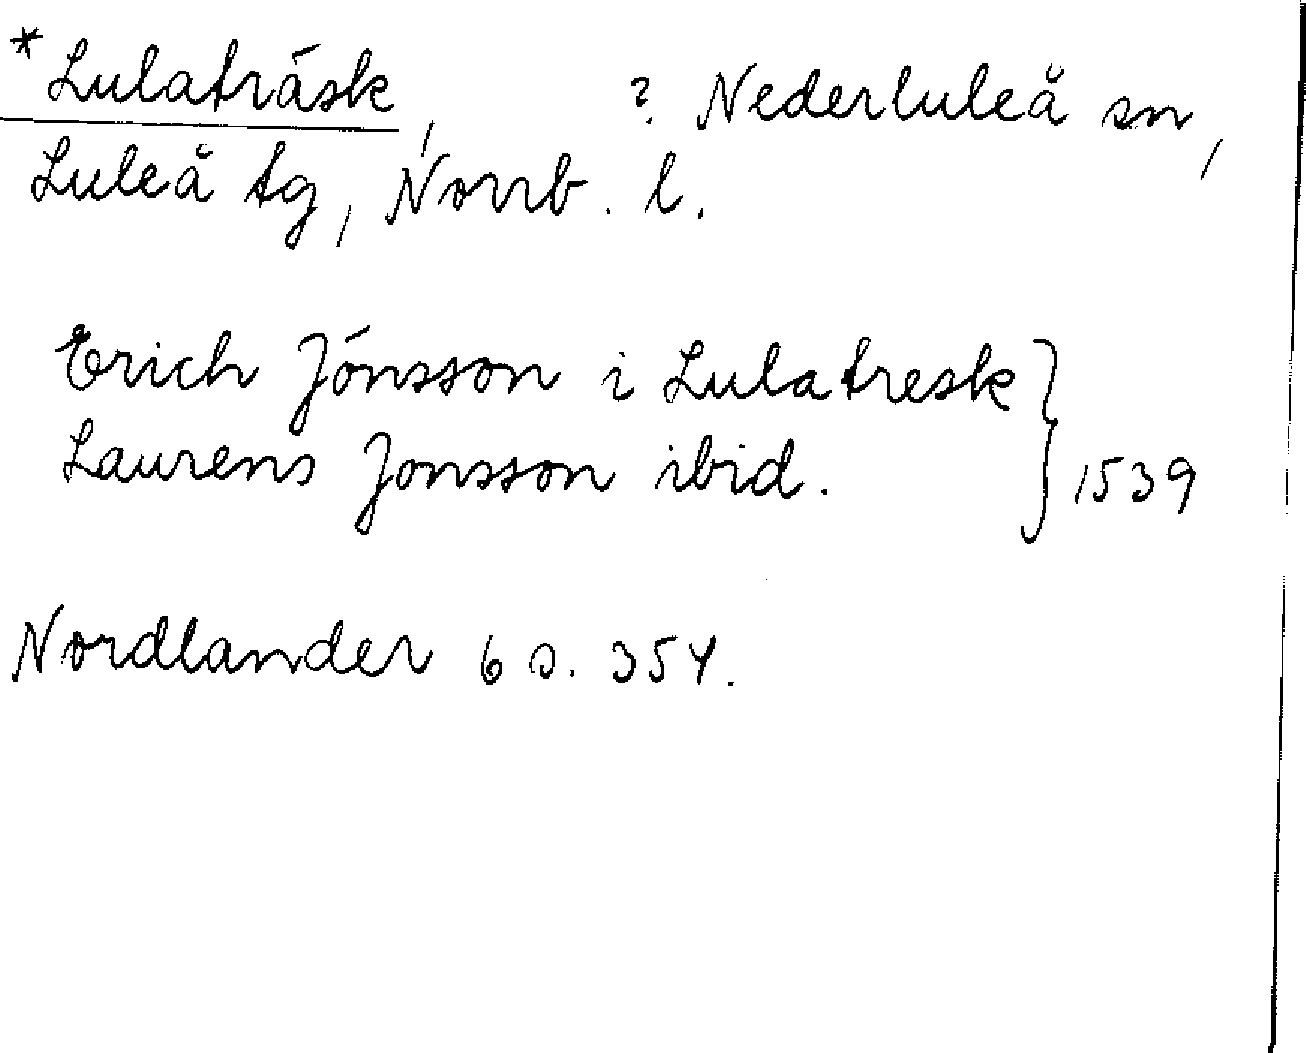 *Lulaträsk, ? Nederluleå sn,
Luleå tg, Norrb. l.
Erich Jónsson i Lulatresk } 1539
Laurens Jonsson ibid.
Nordlander 6 s. 354.